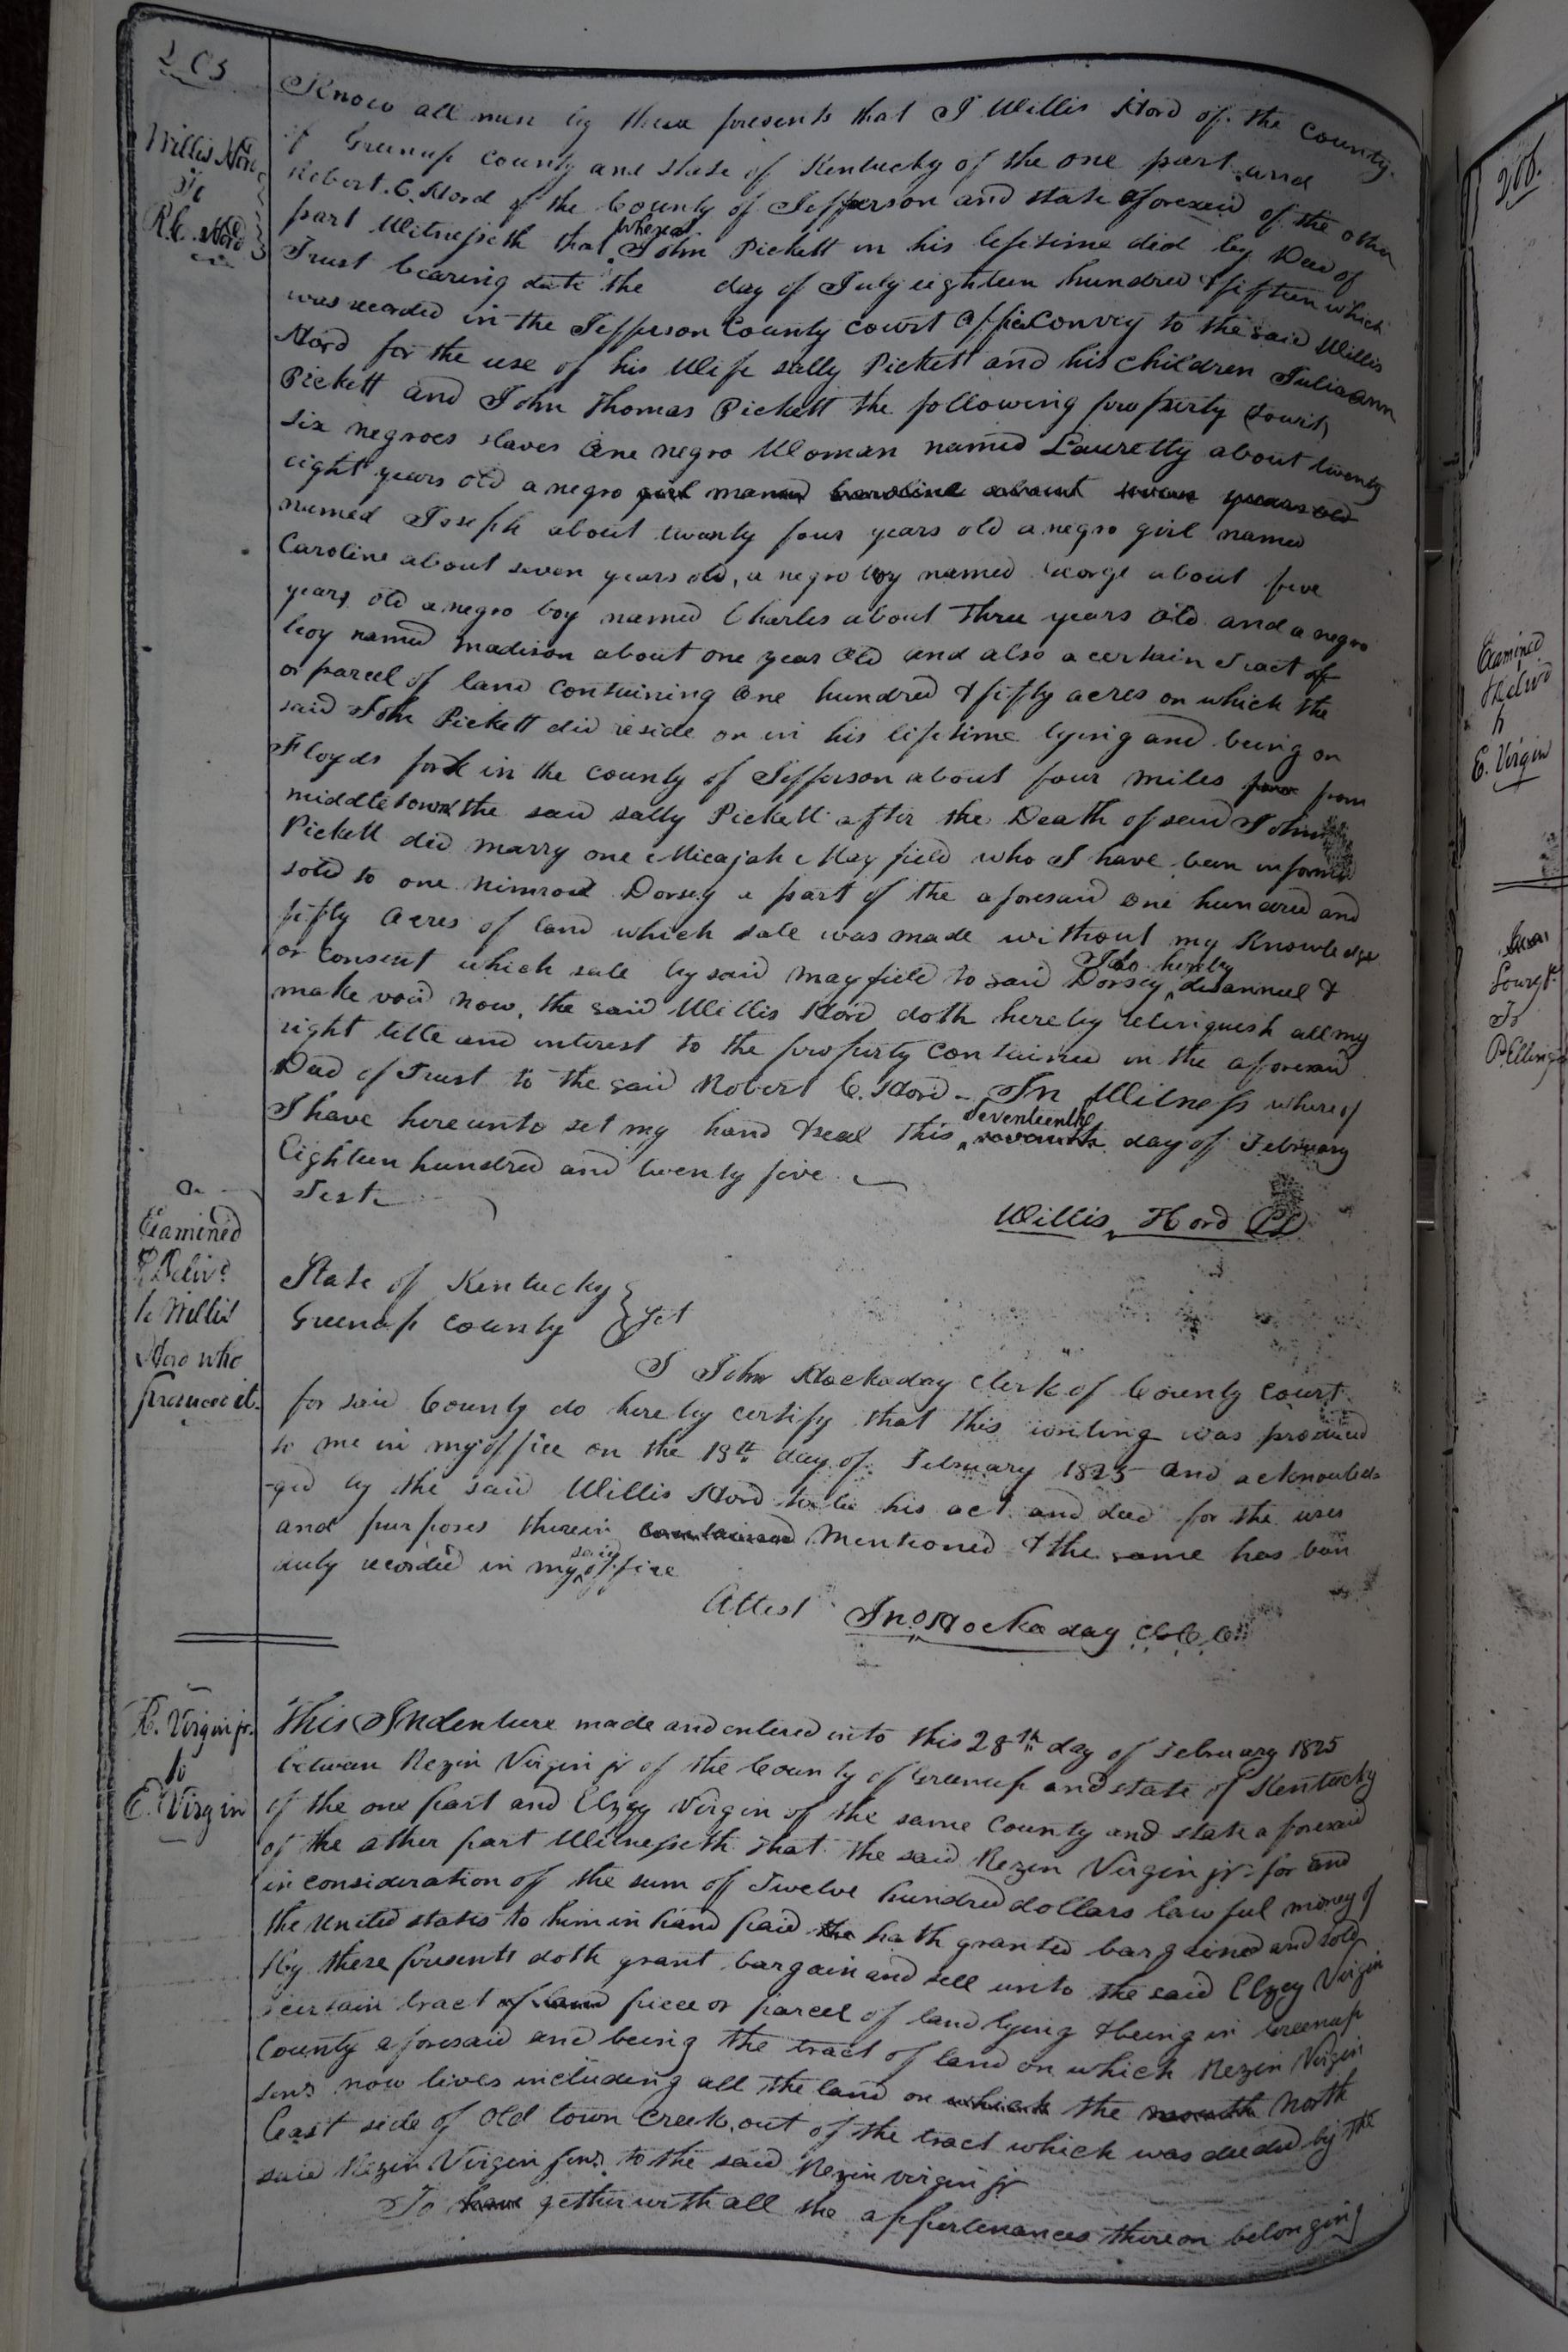 205
Willis Hord
to
R. C. Hord
Know all men by these presents that I Willis Hord of the County
of Greenup County and State of Kentucky of the one part and
Robert. C. Hord of the County of Jefferson and state aforesaid of the other
part Witnesseth that whereas John Pickett in his lifetime did by Deed of
Trust bearing date the day of July eighteen hundred & fifteen which
was recorded in the Jefferson County court office Convey to the said Willis
Hord for the use of his Wife Sally Pickett and his children Juliaann
Pickett and John Thomas Pickett the following property (towit)
six negroes slaves One negro Woman named Lauretty about twenty
eight years old a negro girl maned Caroline about seven years old
named Joseph about twenty four years old a negro girl named
Caroline about seven years old, a negro boy named George about five
years old a negro boy named Charles about three years old and a negro
boy named Madison about one year old and also a certain Tract of
or parcel of land containing One hundred & fifty acres on which the
said John Pickett did reside on in his lifetime lying and being on
Floyds fork in the county of Jefferson about four miles from
middletown the said Sally Pickett after the Death of said John
Pickett did marry one Micajah Mayfield who I have been informed
sold to one Nimrod Dorsey a part of the aforesaid one hundred and
fifty Acres of land which sale was made without my Knowledge
or Consent which sale by said mayfield to said Dorsey I do hereby disannul &
make void now, the said Willis Hord doth hereby relinquish all my
right title and interest to the property contained in the aforesaid
Deed of Trust to the said Robert C. Hord - In Witness whereof
I have hereunto set my hand & seal this seventeenth day of February
Eighteen hundred and twenty five
Teste
Willis Hord
Examined
& Deliv.d
to Willis
Hord who
produced it.
State of Kentucky
Greenup County } Sct
I John Hockaday Clerk of County Court
for said County do hereby certify that this writing was produced
to me in my office on the 18th day of February 1825 and acknowled-
-ged by the said Willis Hord to be his act and deed for the uses
and purposes therein contained mentioned & the same has been
duly recorded in my said office
Attest Jno Hockaday C G C C
R. Virgin jr.
to
E. Virgin
This Indenture made and entered into this 28th day of February 1825
between Rezin Virgin jr of the County of Greenup and state of Kentucky
of the one part and Elzey Virgin of the same County and state aforesaid
of the other part Witnesseth that the said Rezin Virgin jr. for and
in consideration of the sum of Twelve hundred dollars lawful money of
the United states to him in hand paid the hath granted bargained and sold
& by these presents doth grant bargain and sell unto the said Elzey Virgin
a certain tract of land piece or parcel of land lying & being in Greenup
County aforesaid and being the tract of land on which Rezin Virgin
senr now lives including all the land on which the mouth North
East side of Old town Creek, out of the tract which was deeded by the
said Rezin Virgin senr. to the said Rezin virgin jr
To have gether with all the appertenances thereon belonging
206.
Examined
& deliv.d
to
E. Virgin
To